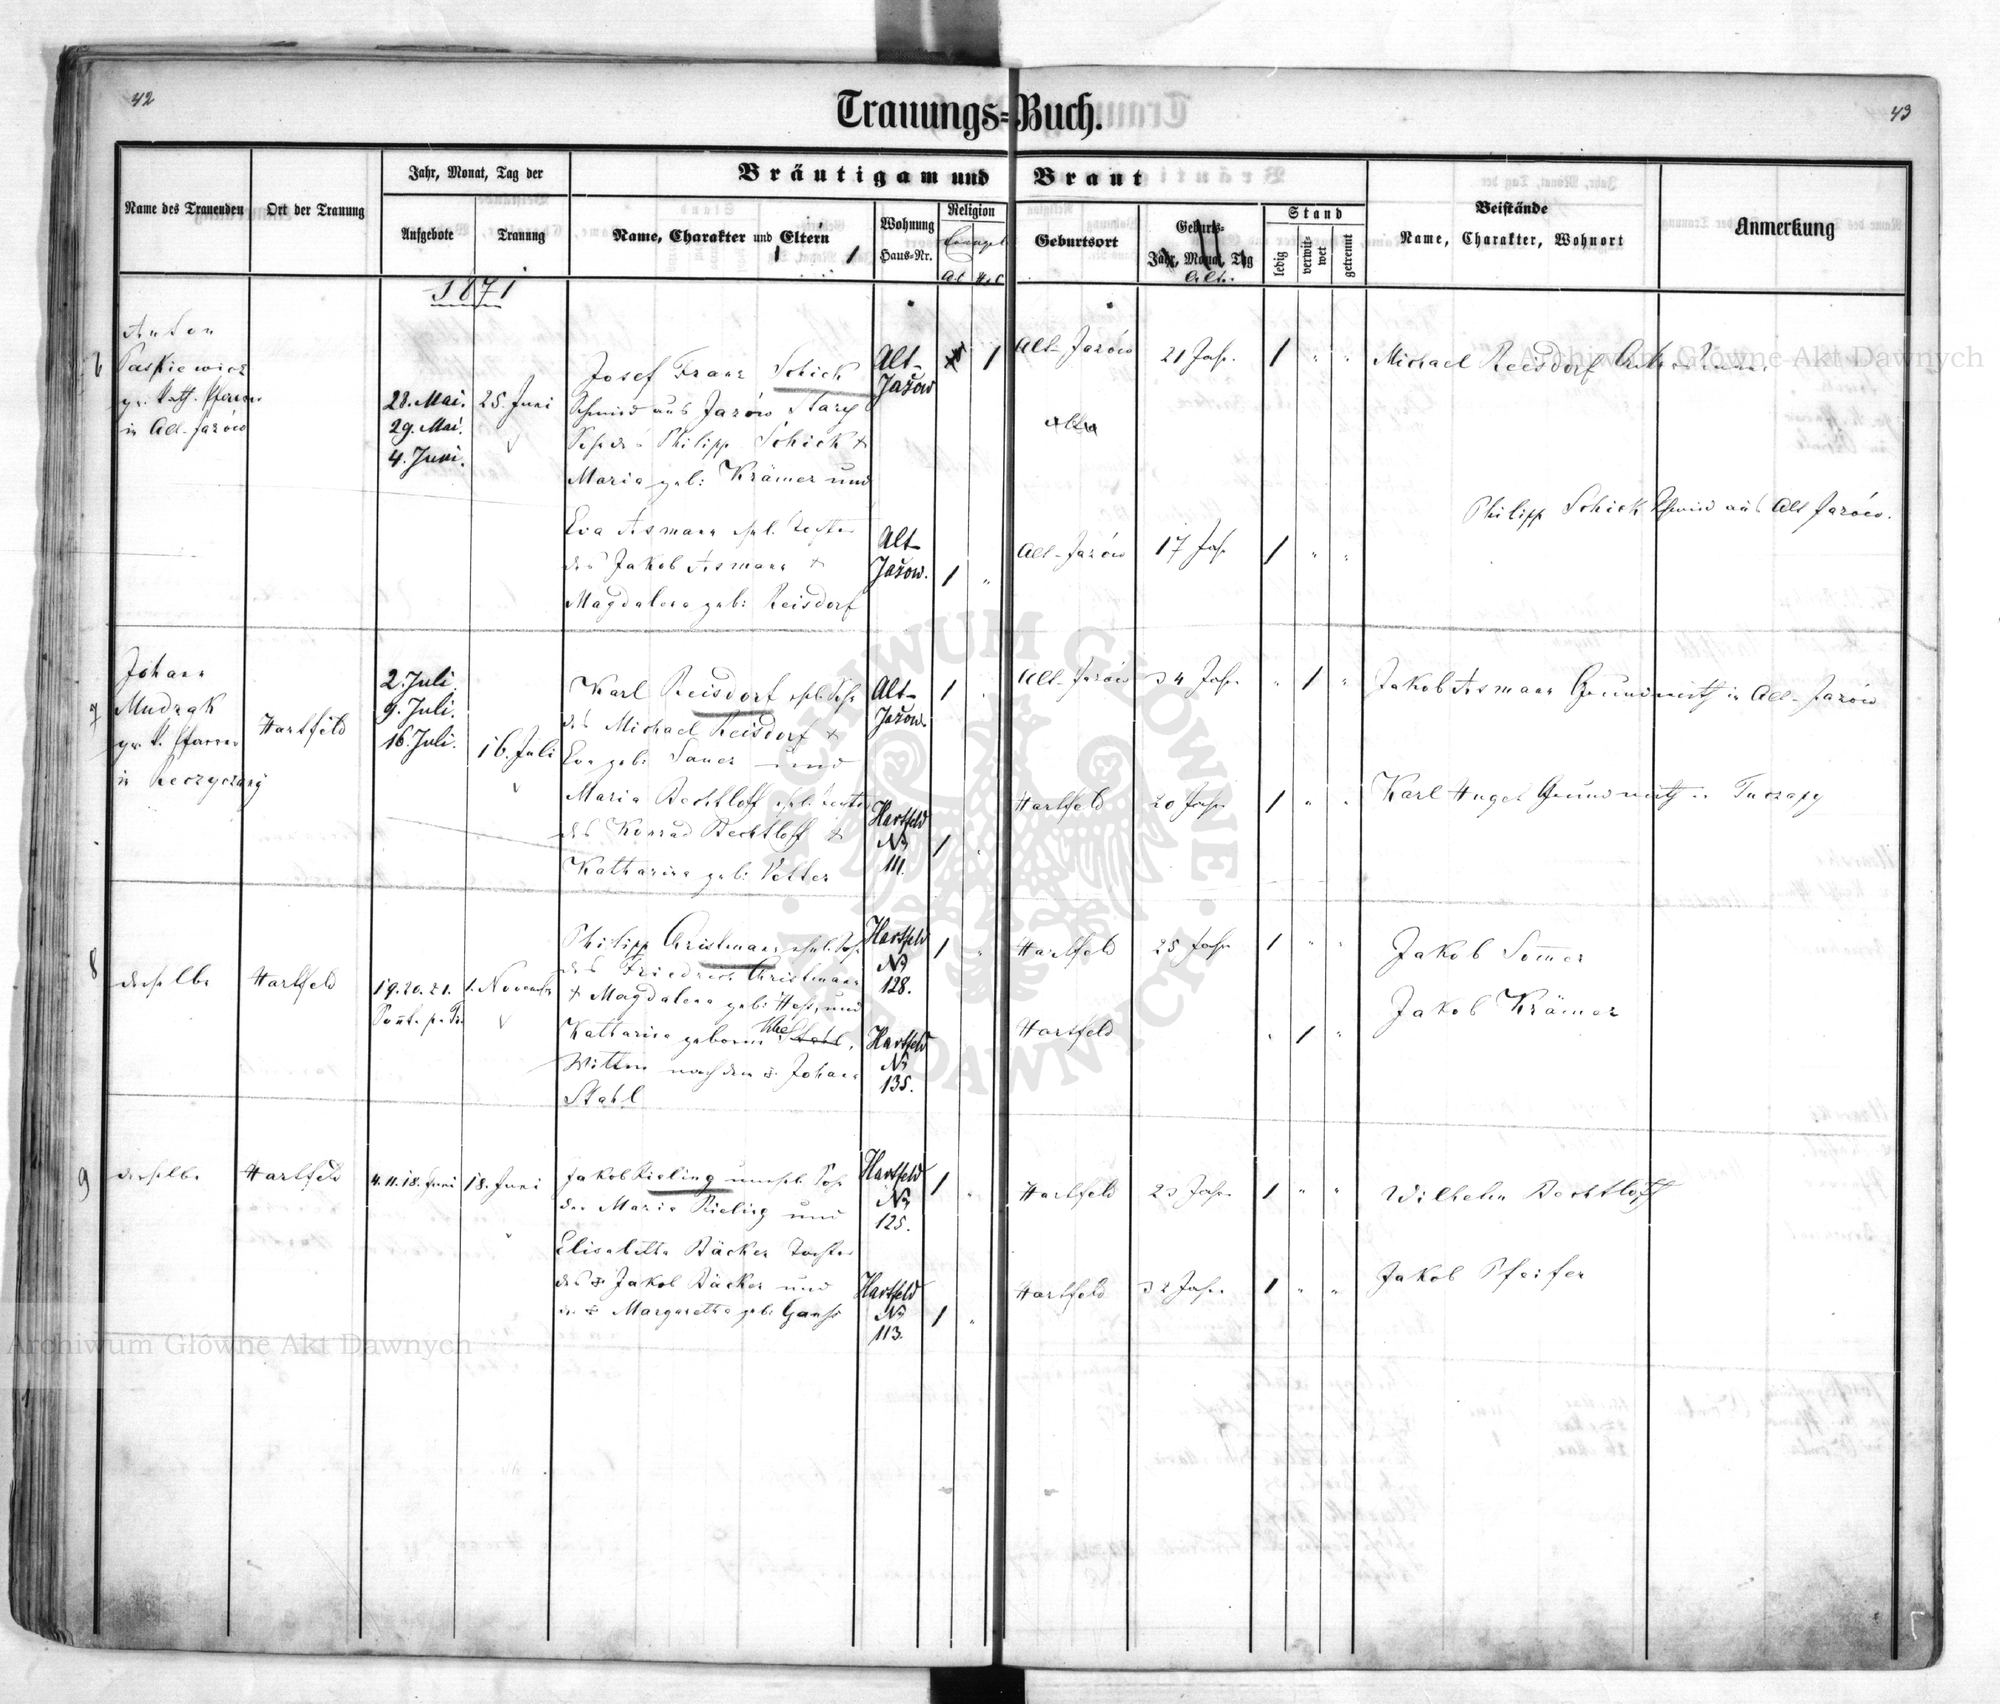 42
43
Trauungs=Buch.
Name des Trauenden
Ort der Trauung
Jahr, Monat, Tag der
Aufgebote
Trauung
Bräutigam und Braut
Name, Charakter und Eltern
Wohnung
Haus-Nr.
Religion
Evangel.
A.C. H.C.
Geburtsort
Geburts-
Jahr, Monat, Tag
Alter
Stand
ledig
verwit-
wet
getrennt
Beistände
Name, Charakter, Wohnort
Anmerkung
1871
6
Anton
Paskiewicz
gr. kath. Pfarrer
in Alt-Jazów
28. Mai.
29. Mai.
4. Juni.
25. Juni
Josef Franz Schick
Schmied aus Jazów Stary
Sohn des Philipp Schick &
Maria geb: Krämer und
Alt-
Jažow
1
Alt-Jazów
21 Jahr.
1 " "
Michael Reisdorf
Eva Asmann ehel. Tochter
des Jakob Asmann &
Magdalena geb: Reisdorf
Alt-
Jažow.
1 "
Alt-Jazów
17 Jahr
1 " "
Philipp Schick Schmied aus Alt Jazów.
7
Johann
Mudrak
gr. k. Pfarrer
in Reczyczany
Hartfeld
2. Juli
9. Juli.
16. Juli.
16. Juli
Karl Reisdorf ehel. Sohn
des Michael Reisdorf &
Eva geb: Sauer und
Alt-
Jažow.
1
Alt-Jazów
34 Jahr
" 1 "
Jakob Asmann Grundwirth in Alt-Jazów
Maria Bechtloff ehel. Tochter
des Konrad Bechtloff &
Katharina geb: Vetter
Hartfeld
No
111.
1
Hartfeld
20 Jahr
1 " "
Karl Hugel Grundwirth in Tuczapy
8
derselbe
Hartfeld
19. 20. 21.
Sont. p. Tr.
1. November
Philipp Christmann ehel. Sohn
des Friedrich Christmann
& Magdalena geb: Heß, und
Hartfeld
No
128.
1 "
Hartfeld
25 Jahr
1 " "
Jakob Som̄er
Katharina geborne
Wittwe nach dem Johann
Stahl
Hartfeld
No
135.
Hartfeld
" 1 "
Jakob Krämer
9
derselbe
Hartfeld
4. 11. 18. Juni
18. Juni
Jakob Rieling unehel. Sohn
der Maria Rieling und
Hartfeld
No
125.
1 "
Hartfeld
23 Jahr
1 " "
Wilhelm Bechtloff
Elisabetha Bäcker Tochter
des Jakob Bäcker und
Margaretha geb: Ganß
Hartfeld
No
113.
1 "
Hartfeld
32 Jahr
1 " "
Jakob Pfeifer
Archiwum Główne Akt Dawnych
Archiwum Główne Akt Dawnych
ARCHIWUM GŁÓWNE AKT DAWNYCH